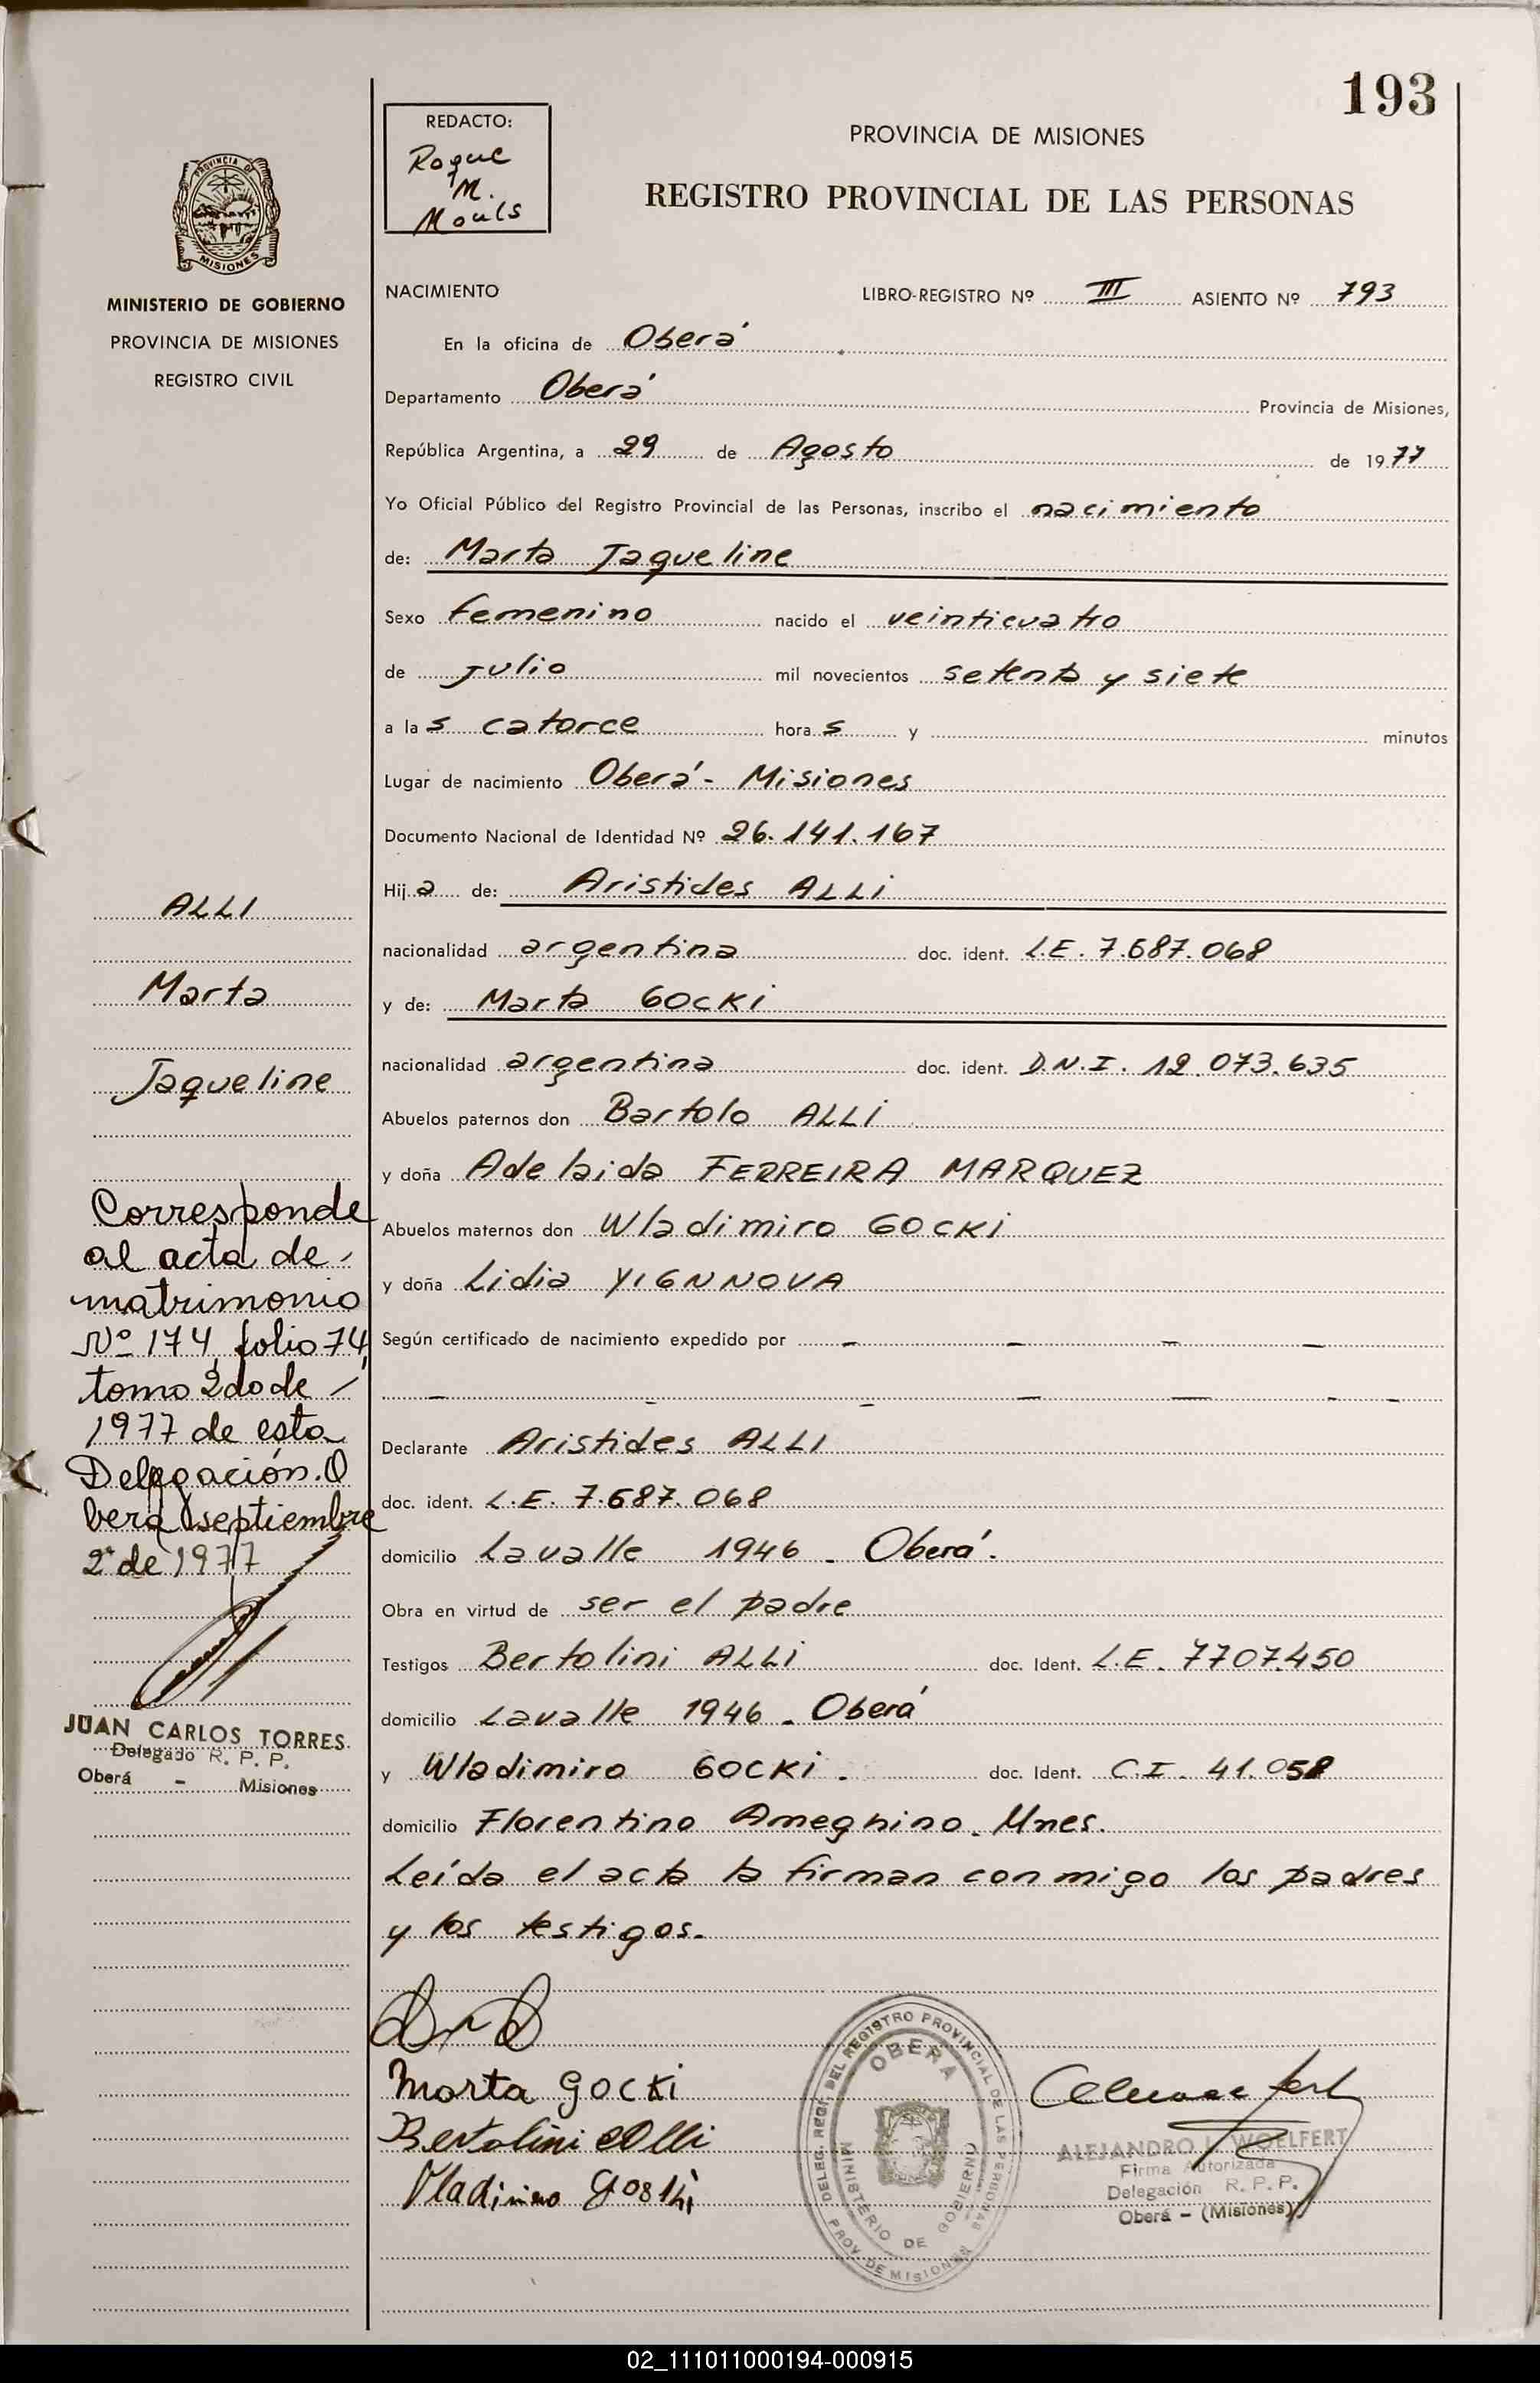 193
REDACTO:
Roque
M.
Mouls
PROVINCIA DE MISIONES
REGISTRO PROVINCIAL DE LAS PERSONAS
PROVINCIA DE
MISIONES
MINISTERIO DE GOBIERNO
PROVINCIA DE MISIONES
REGISTRO CIVIL
NACIMIENTO LIBRO-REGISTRO Nº III ASIENTO Nº 793
En la oficina de Oberá
Departamento Oberá Provincia de Misiones,
República Argentina, a 29 de Agosto de 1977
Yo Oficial Público del Registro Provincial de las Personas, inscribo el nacimiento
de: Marta Jaqueline
Sexo femenino nacido el veinticuatro
de julio mil novecientos setenta y siete
a las catorce horas y minutos
Lugar de nacimiento Oberá - Misiones
Documento Nacional de Identidad Nº 26.141.167
Hija de: Aristides ALLI
nacionalidad argentina doc. ident. L.E. 7.687.068
y de: Marta GOCKI
nacionalidad argentina doc. ident. D.N.I. 12.073.635
Abuelos paternos don Bartolo ALLI
y doña Adelaida FERREIRA MARQUEZ
Abuelos maternos don Wladimiro GOCKI
y doña Lidia YIGNNOVA
Según certificado de nacimiento expedido por - - - -
- - - - - - -
Declarante Aristides ALLI
doc. ident. L.E. 7.687.068
domicilio Lavalle 1946 - Oberá.
Obra en virtud de ser el padre
Testigos Bertolini ALLI doc. Ident. L.E. 7707.450
domicilio Lavalle 1946 - Oberá
y Wladimiro GOCKI. doc. Ident. C.I. 41.058
domicilio Florentino Ameghino. Mnes.
Leída el acta la firman conmigo los padres
y los testigos.
ALLI
Marta
Jaqueline
Corresponde
al acta de
matrimonio
Nº 174, folio 74,
tomo 2do de
1977 de esta
Delegación. O
berá septiembre
2 de 1977
JUAN CARLOS TORRES
Delegado R. P. P.
Oberá - Misiones
Marta GOCKI
Bertolini Alli
Vladimiro
DELEG. REGT. DEL REGISTRO PROVINCIAL DE LAS PERSONAS
OBERA
MINISTERIO DE GOBIERNO
PROV. DE MISIONES
ALEJANDRO L. WOELFERT
Firma Autorizada
Delegación R. P. P.
Oberá - (Misiones)
02_111011000194-000915